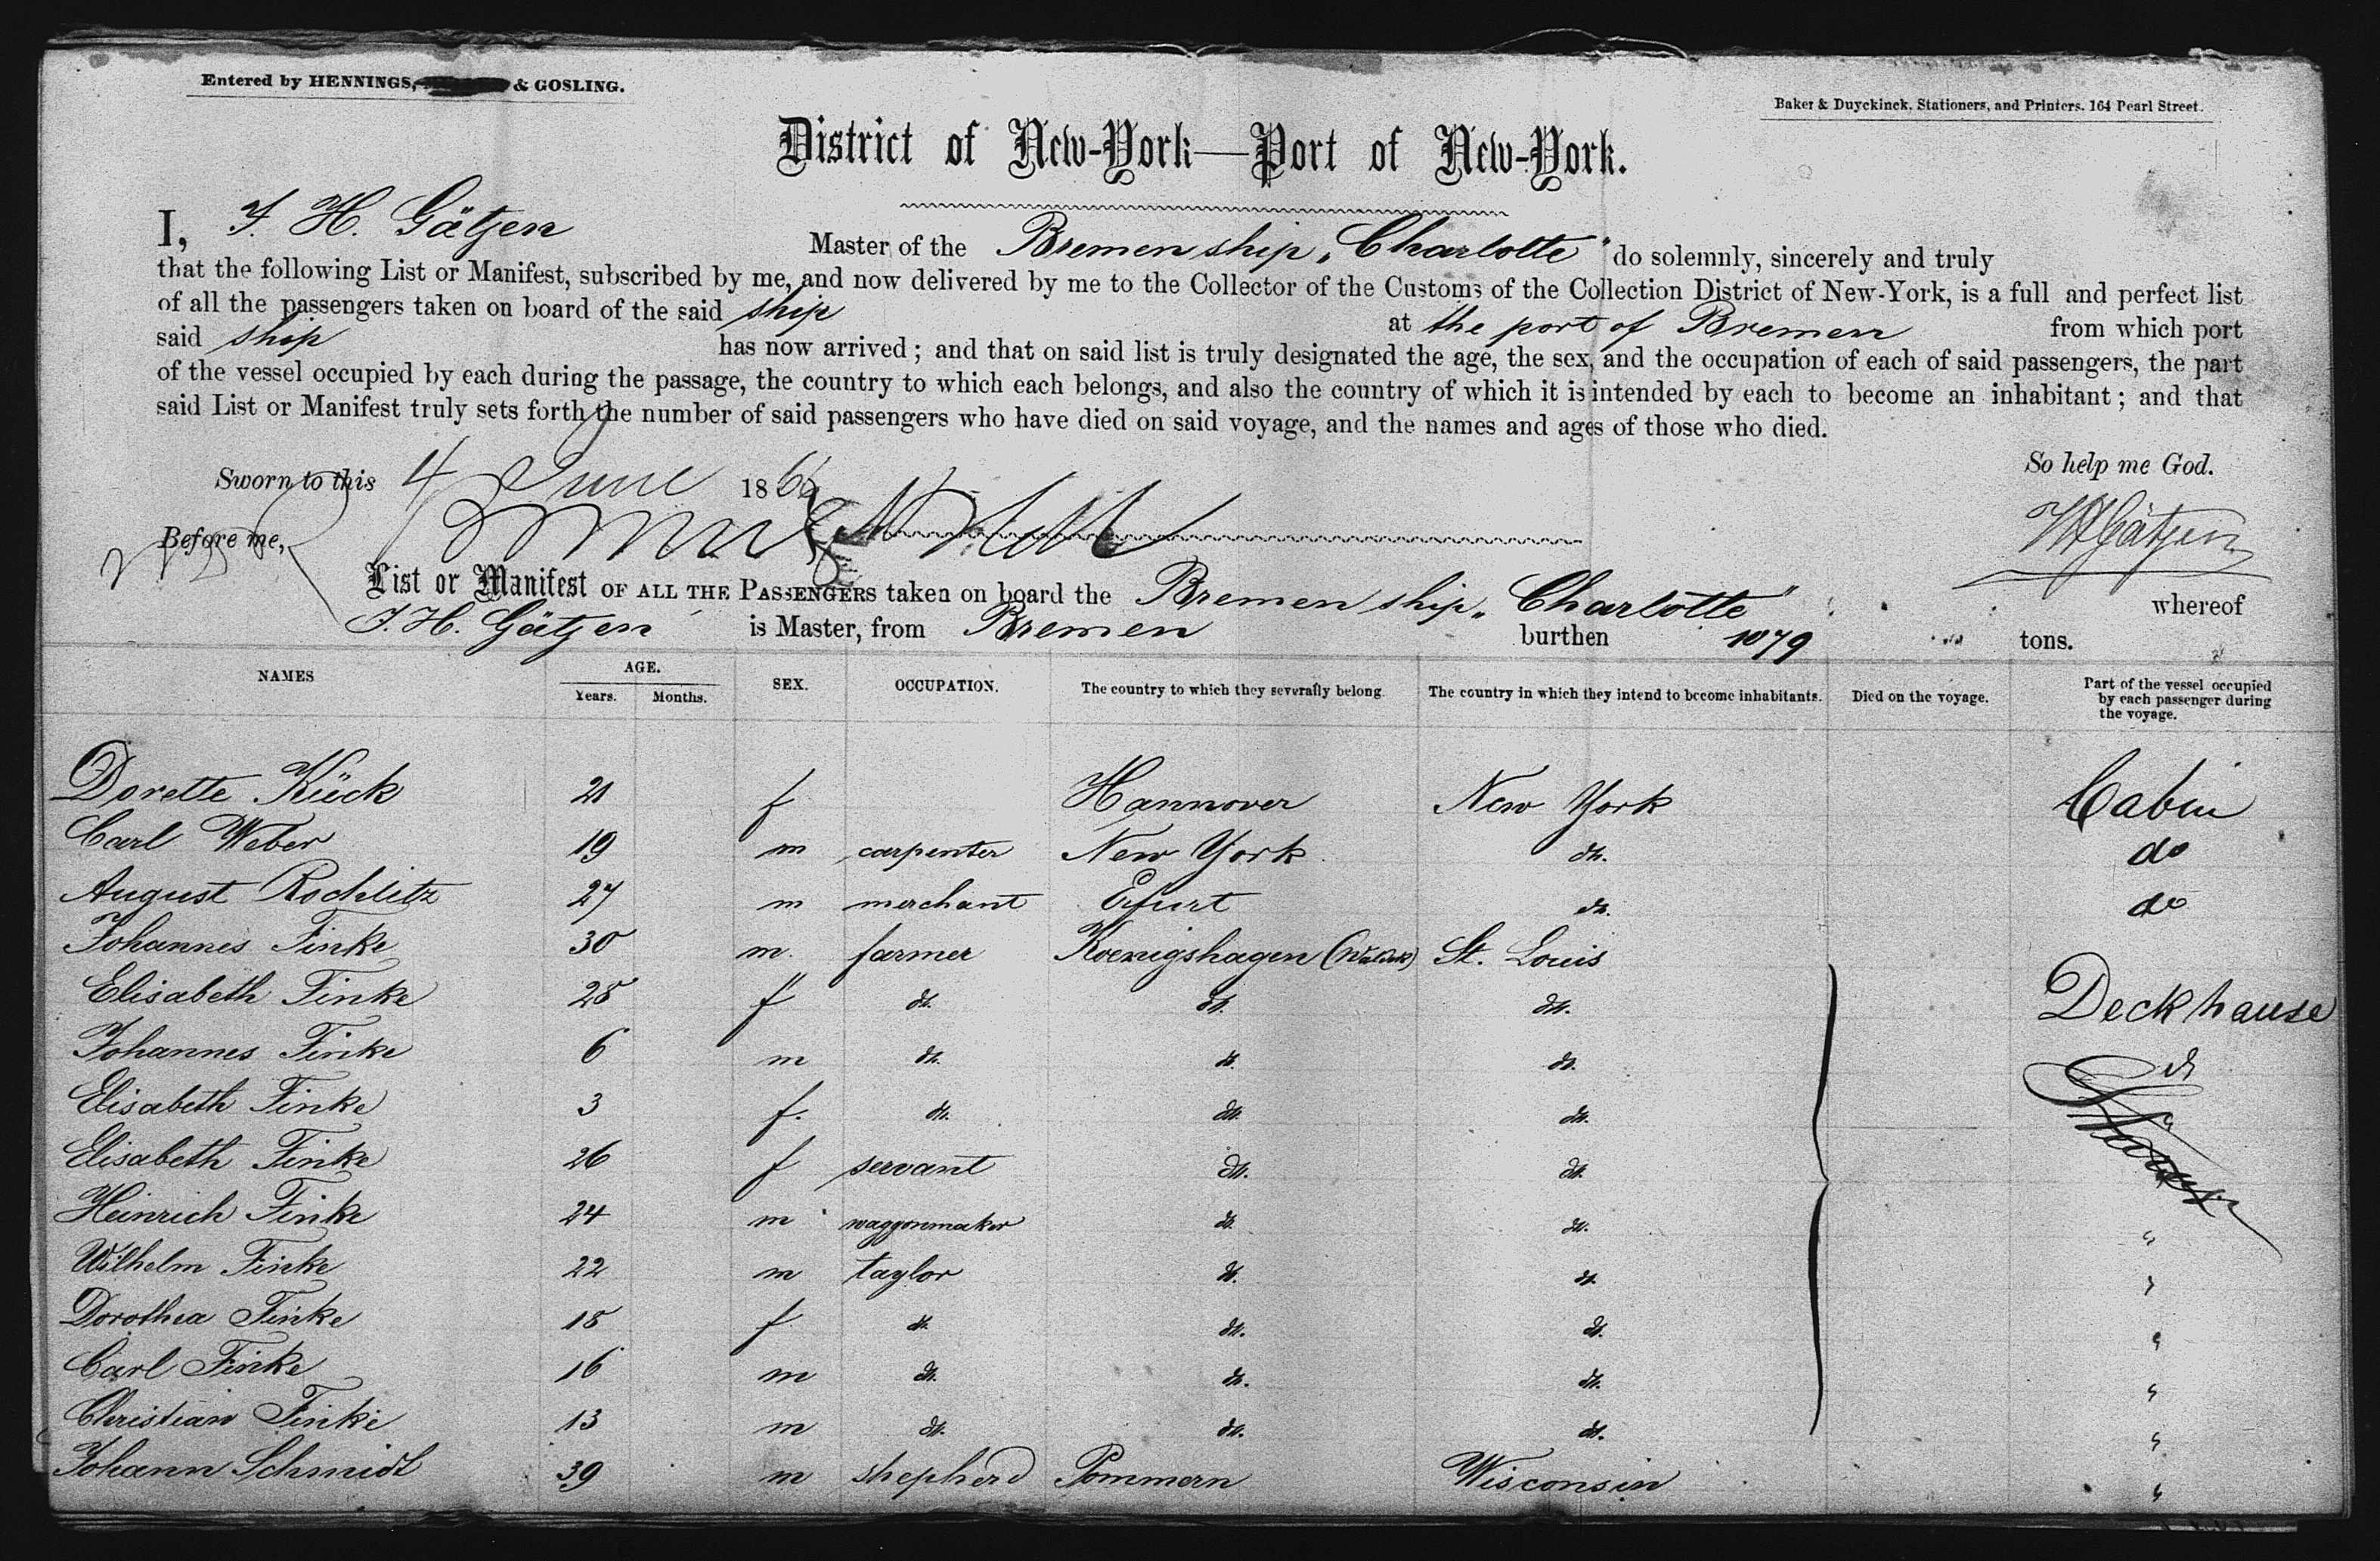 Entered by HENNINGS, & GOSLING.
Baker & Duyckinck, Stationers, and Printers. 164 Pearl Street.
District of New-York—Port of New-York.
I, J. H. Gätjen Master of the Bremen ship „Charlotte" do solemnly, sincerely and truly
that the following List or Manifest, subscribed by me, and now delivered by me to the Collector of the Customs of the Collection District of New-York, is a full and perfect list
of all the passengers taken on board of the said ship at the port of Bremen from which port
said ship has now arrived; and that on said list is truly designated the age, the sex, and the occupation of each of said passengers, the part
of the vessel occupied by each during the passage, the country to which each belongs, and also the country of which it is intended by each to become an inhabitant; and that
said List or Manifest truly sets forth the number of said passengers who have died on said voyage, and the names and ages of those who died.
So help me God.
Sworn to this 4 June 186
JHGätjen
Before me,
List or Manifest OF ALL THE PASSENGERS taken on board the Bremen ship „Charlotte" whereof
J. H. Gätjen is Master, from Bremen burthen 1079 tons.
NAMES AGE. Years. Months. SEX. OCCUPATION. The country to which they severally belong. The country in which they intend to become inhabitants. Died on the voyage. Part of the vessel occupied by each passenger during the voyage.
Dorette Kück 21 f Hannover New York Cabin
Carl Weber 19 m carpenter New York do. do
August Rochlitz 27 m merchant Erfurt do. do
Johannes Finke 30 m. farmer Koenigshagen (Waldeck) St. Louis
Elisabeth Finke 28 f do. do. do. Deckhause
Johannes Finke 6 m do. do. do. do
Elisabeth Finke 3 f. do. do. do. "
Elisabeth Finke 26 f servant do. do.
Heinrich Finke 24 m waggonmaker do. do. "
Wilhelm Finke 22 m taylor do. do. "
Dorothea Finke 18 f do. do. do. "
Carl Finke 16 m do. do. do. "
Christian Finke 13 m do. do. do. "
Johann Schmidt 39 m shepherd Pommern Wisconsin "